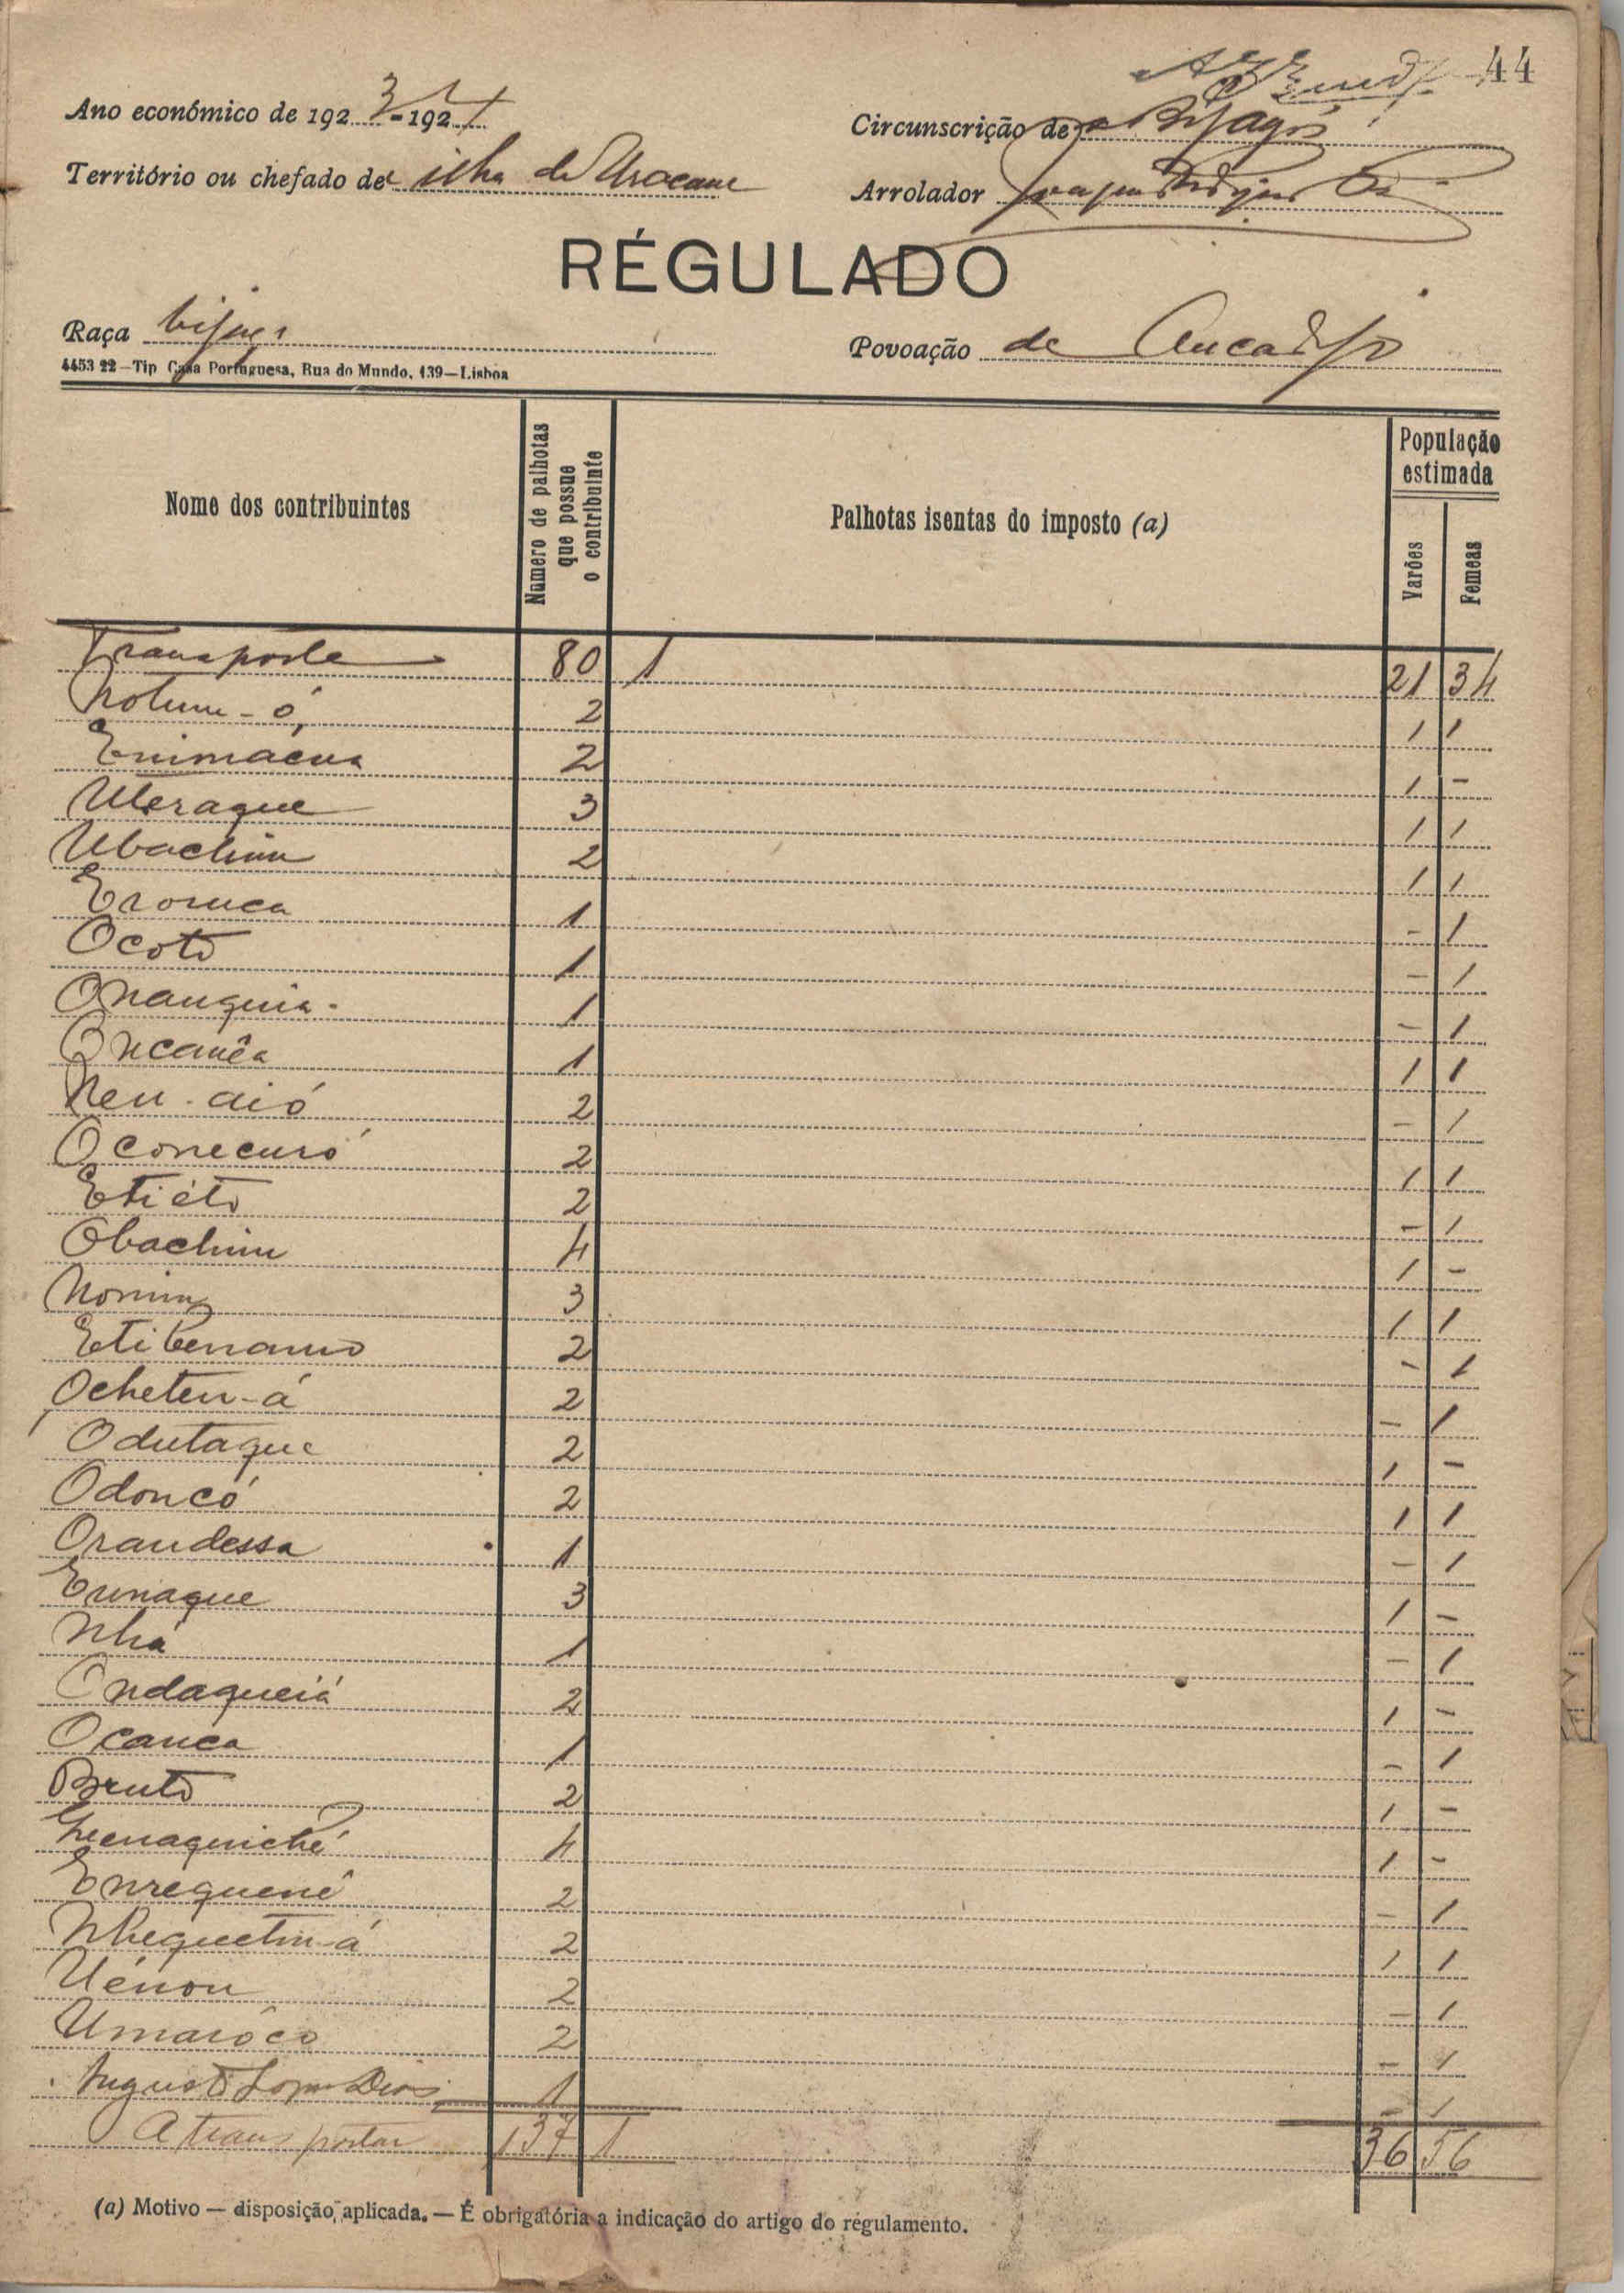 44
Ano económico de 1923-1924
Circunscrição de Bijagós
Território ou chefado de ilha de Uracane
Arrolador
RÉGULADO
Raça bijagós
Povoação de Ancadajo
4453 22—Tip Casa Portuguesa, Rua do Mundo, 139—Lisboa
Nome dos contribuintes
Número de palhotas que possue o contribuinte
Palhotas isentas do imposto (a)
População estimada
Varões
Femeas
Transporte 80 1 21 34
Notum-ó 2 1 1
Enimacua 2 1 -
Uteraque 3 1 1
Ubachim 2 1 1
Eronca 1 - 1
Ocoto 1 - 1
Onanquia 1 - 1
Oncanêa 1 1 1
Neu-aió 2 - 1
Oconecuró 2 1 1
Etiéto 2 - 1
Obachim 4 1 -
Nonim 3 1 1
Etibenano 2 - 1
Ocheten-á 2 - 1
Odutaque 2 1 -
Odoncó 2 1 1
Orandessa 1 - 1
Eunaque 3 1 -
Nhá 1 - 1
Ondaqueiá 2 1 -
Ocanca 1 - 1
Bruto 2 1 -
4 1 -
Enrequené 2 - 1
Nhequetim-á 2 1 1
Uénou 2 - 1
Umaróco 2 - 1
Augusto Lopes Dias 1 - 1
A transportar 137 1 36 56
(a) Motivo — disposição aplicada. — É obrigatória a indicação do artigo do regulamento.